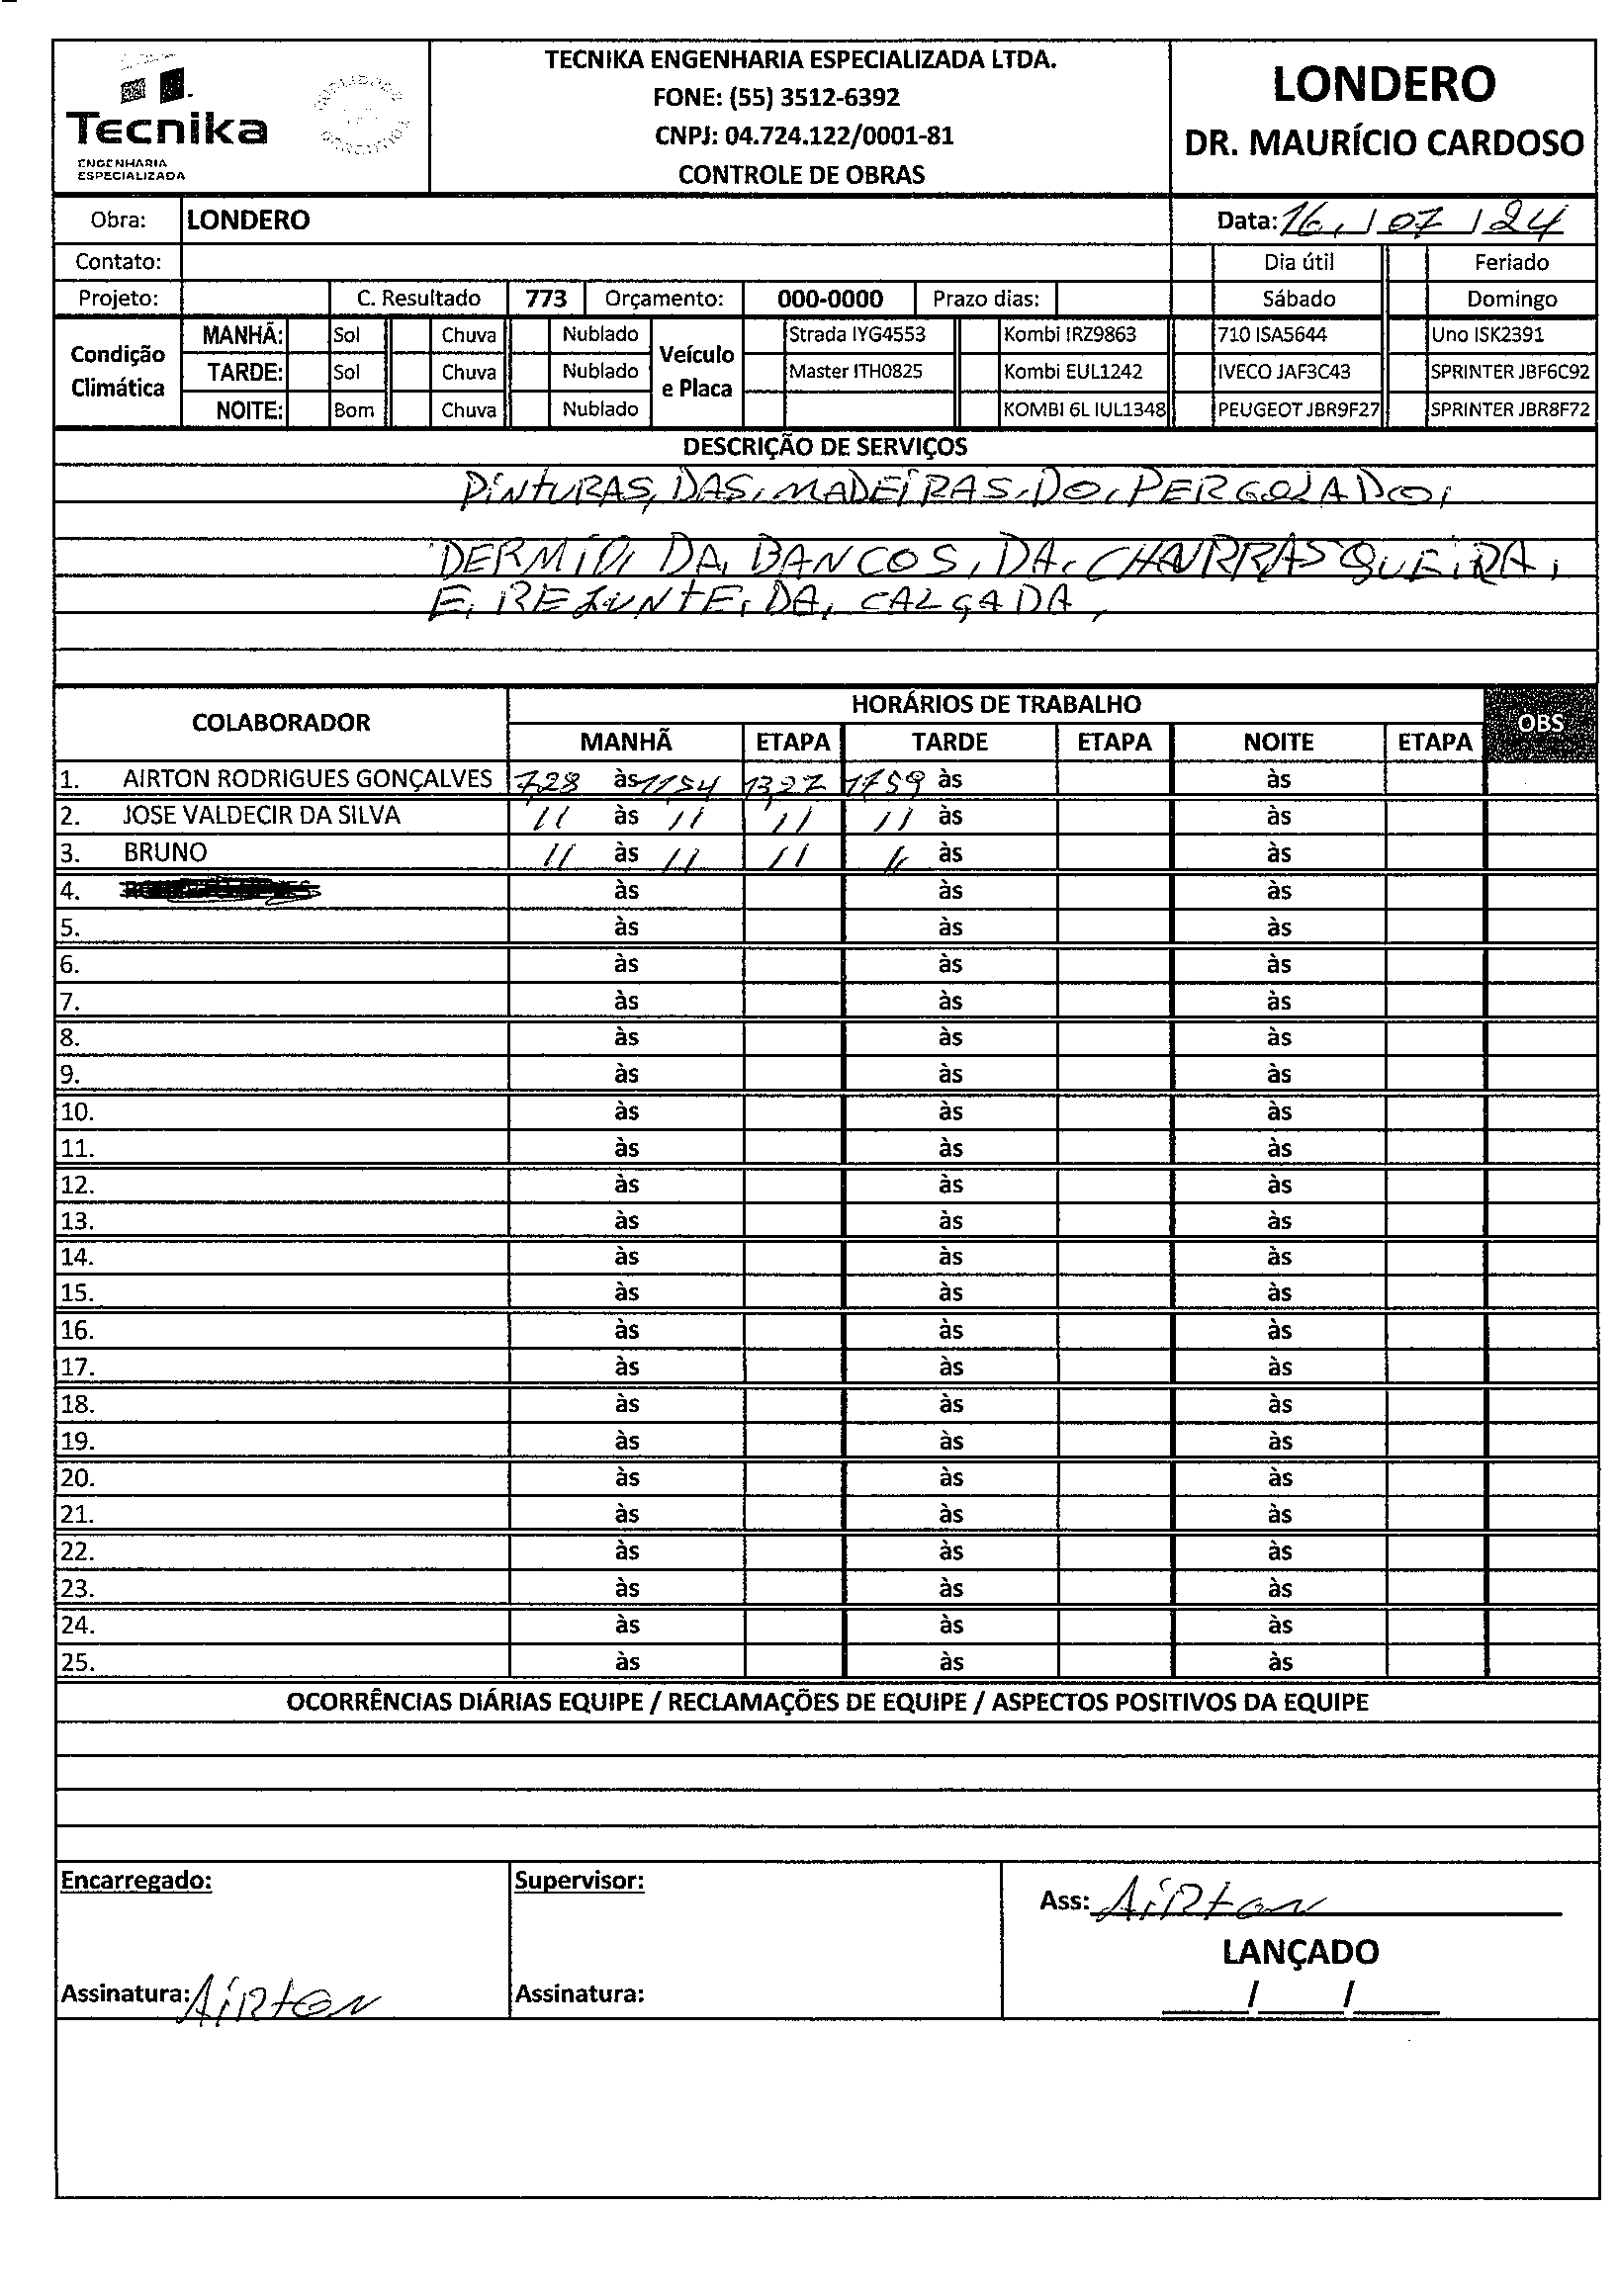 Tecnika
ENGENHARIA
ESPECIALIZADA
TECNIKA ENGENHARIA ESPECIALIZADA LTDA.
FONE: (55) 3512-6392
CNPJ: 04.724.122/0001-81
CONTROLE DE OBRAS
LONDERO
DR. MAURÍCIO CARDOSO
Obra: LONDERO Data: 16, / 07 / 24
Contato: Dia útil Feriado
Projeto: C. Resultado 773 Orçamento: 000-0000 Prazo dias: Sábado Domingo
Condição Climática Veículo e Placa
MANHÃ: Sol Chuva Nublado Strada IYG4553 Kombi IRZ9863 710 ISA5644 Uno ISK2391
TARDE: Sol Chuva Nublado Master ITH0825 Kombi EUL1242 IVECO JAF3C43 SPRINTER JBF6C92
NOITE: Bom Chuva Nublado KOMBI 6L IUL1348 PEUGEOT JBR9F27 SPRINTER JBR8F72
DESCRIÇÃO DE SERVIÇOS
PINTURAS, DAS, MADEIRAS, DO, PERGOLADO,
DA, BANCOS, DA, CHURRASQUEIRA,
E, REJUNTE, DA, CALÇADA,
COLABORADOR HORÁRIOS DE TRABALHO OBS
MANHÃ ETAPA TARDE ETAPA NOITE ETAPA
1. AIRTON RODRIGUES GONÇALVES 7,28 às 11,54 13,27 17,59 às às
2. JOSE VALDECIR DA SILVA 11 às 11 11 11 às às
3. BRUNO 11 às 11 11 11 às às
4. às às às
5. às às às
6. às às às
7. às às às
8. às às às
9. às às às
10. às às às
11. às às às
12. às às às
13. às às às
14. às às às
15. às às às
16. às às às
17. às às às
18. às às às
19. às às às
20. às às às
21. às às às
22. às às às
23. às às às
24. às às às
25. às às às
OCORRÊNCIAS DIÁRIAS EQUIPE / RECLAMAÇÕES DE EQUIPE / ASPECTOS POSITIVOS DA EQUIPE
Encarregado: Supervisor:
Ass: Airton
LANÇADO
Assinatura: Airton Assinatura: / /